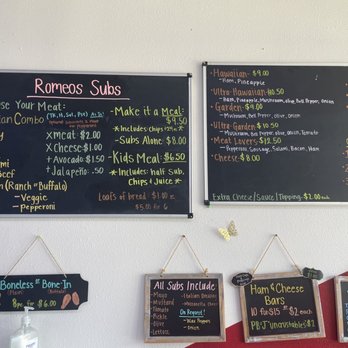 Romeos Subs
se Your Meat:
an Combo
Make it a Meal:
$9.50
*Includes Chips
Subs Alone $8.00
Kids Meal: $6.50
*Includes: Half Sub,
Chips & Juice*
xmeat $2.00
xCheese $1.00
+ Avocado $1.50
+Jalapeño: .50
(Ranch or Buffalo)
- Veggie
- Pepperoni
Loafs of bread $1.00
$5.00 for 6
-Hawaiian- $9.00
Ham, Pineapple
-Ultra-Hawaiian $10.50
Ham, Pineapple, Mushroom, olive, Bell Pepper, Onion
-Garden- $9.00
Mushroom, Bell Pepper, olive, Onion
-Ultra-Garden $10.50
Mushroom, Bell Pepper, olive, Onion, Tomato
-Meat Lovers $12.50
Pepperoni, Sausage, Salami, Bacon, Ham
-Cheese $8.00
Extra Cheese/Sauce/Topping-$2.00
Boneless or Bone-In
8pc for $6.00
All Subs Include
- Mayo
- Mustard
- Tomato
- Pickle
- Olive
- Lettuce
- Italian Dressing
- Mozzarella Cheese
On Request!
- Onion
Ham & Cheese
Bars
10 for $15 or $2 each
PB&J Uncrustables $2